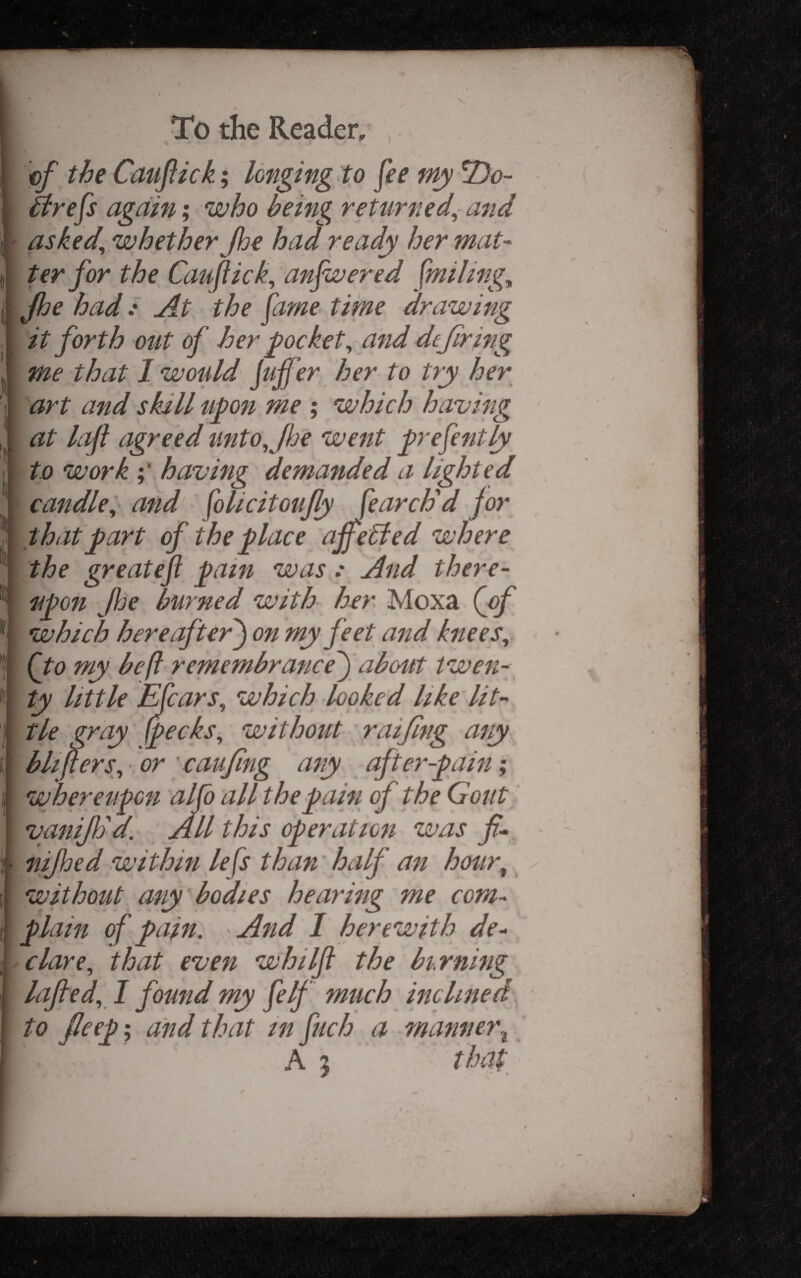 To the Reader.
of the Cauſtick; longing to ſee my Do-
ctreſs again; who being returned, and
asked, whether ſhe had ready her mat-
ter for the Cauſtick, anſwered ſmiling,
ſhe had: At the ſame time drawing
it forth out of her pocket, and deſiring
me that I would ſuffer her to try her
art and skill upon me; which having
at laſt agreed unto, ſhe went preſently
to work; having demanded a lighted
candle, and ſolicitouſly ſearch'd for
that part of the place affected where
the greateſt pain was: And there-
upon ſhe burned with her Moxa (of
which hereafter) on my feet and knees,
(to my beſt remembrance) about twen-
ty little Eſcars, which looked like lit-
tle gray ſpecks, without raiſing any
bliſters, or cauſing any after-pain;
whereupon alſo all the pain of the Gout
vaniſh'd. All this operation was fi-
niſhed within leſs than half an hour,
without any bodies hearing me com-
plain of pain. And I herewith de-
clare, that even whilſt the burning
laſted, I found my ſelf much inclined
to ſleep; and that in ſuch a manner,
A 3 that